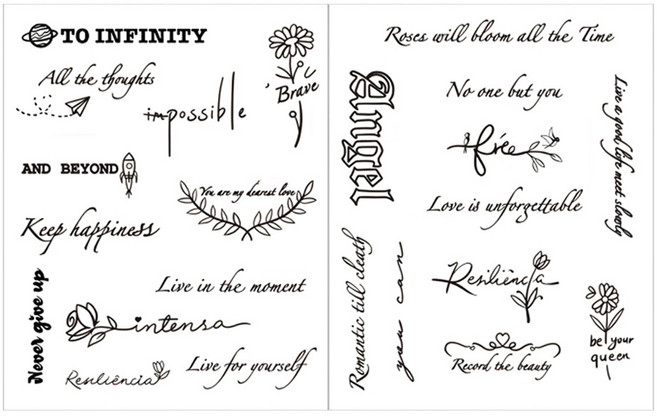 TO INFINITY
All the thoughts
impossible
Brave
AND BEYOND
You are my dearest love
Keep happiness
Live in the moment
Never give up
intensa
Resiliência
Live for yourself
Roses will bloom all the Time
Angel
No one but you
Live a good life meet slowly
free
Love is unforgettable
Romantic till cleath
you can
Resiliência
be your
queen
Record the beauty